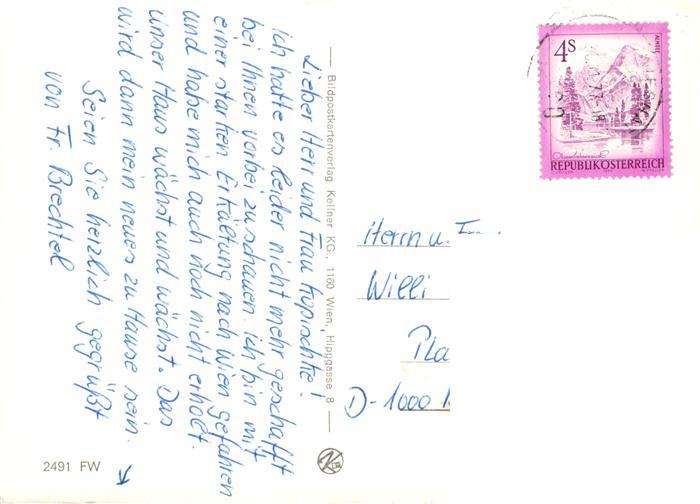 Lieber Herr und Frau
ich hatte es leider nicht mehr geschafft
bei Ihnen vorbei zu schauen. ich bin mit
einer starken Erkältung nach Wien gefahren
und habe mich auch noch nicht erholt.
unser Haus wächst und wächst. Das
wird dann mein neues zu Hause sein.
Seien Sie herzlich gegrüßt
von Fr. Brechtel
Bildpostkartenverlag Kellner KG., 1160 Wien, Hipggasse 8
2491 FW
4 S
ALMSEE
REPUBLIK ÖSTERREICH
Herrn u.
Willi
Pla
D-1000